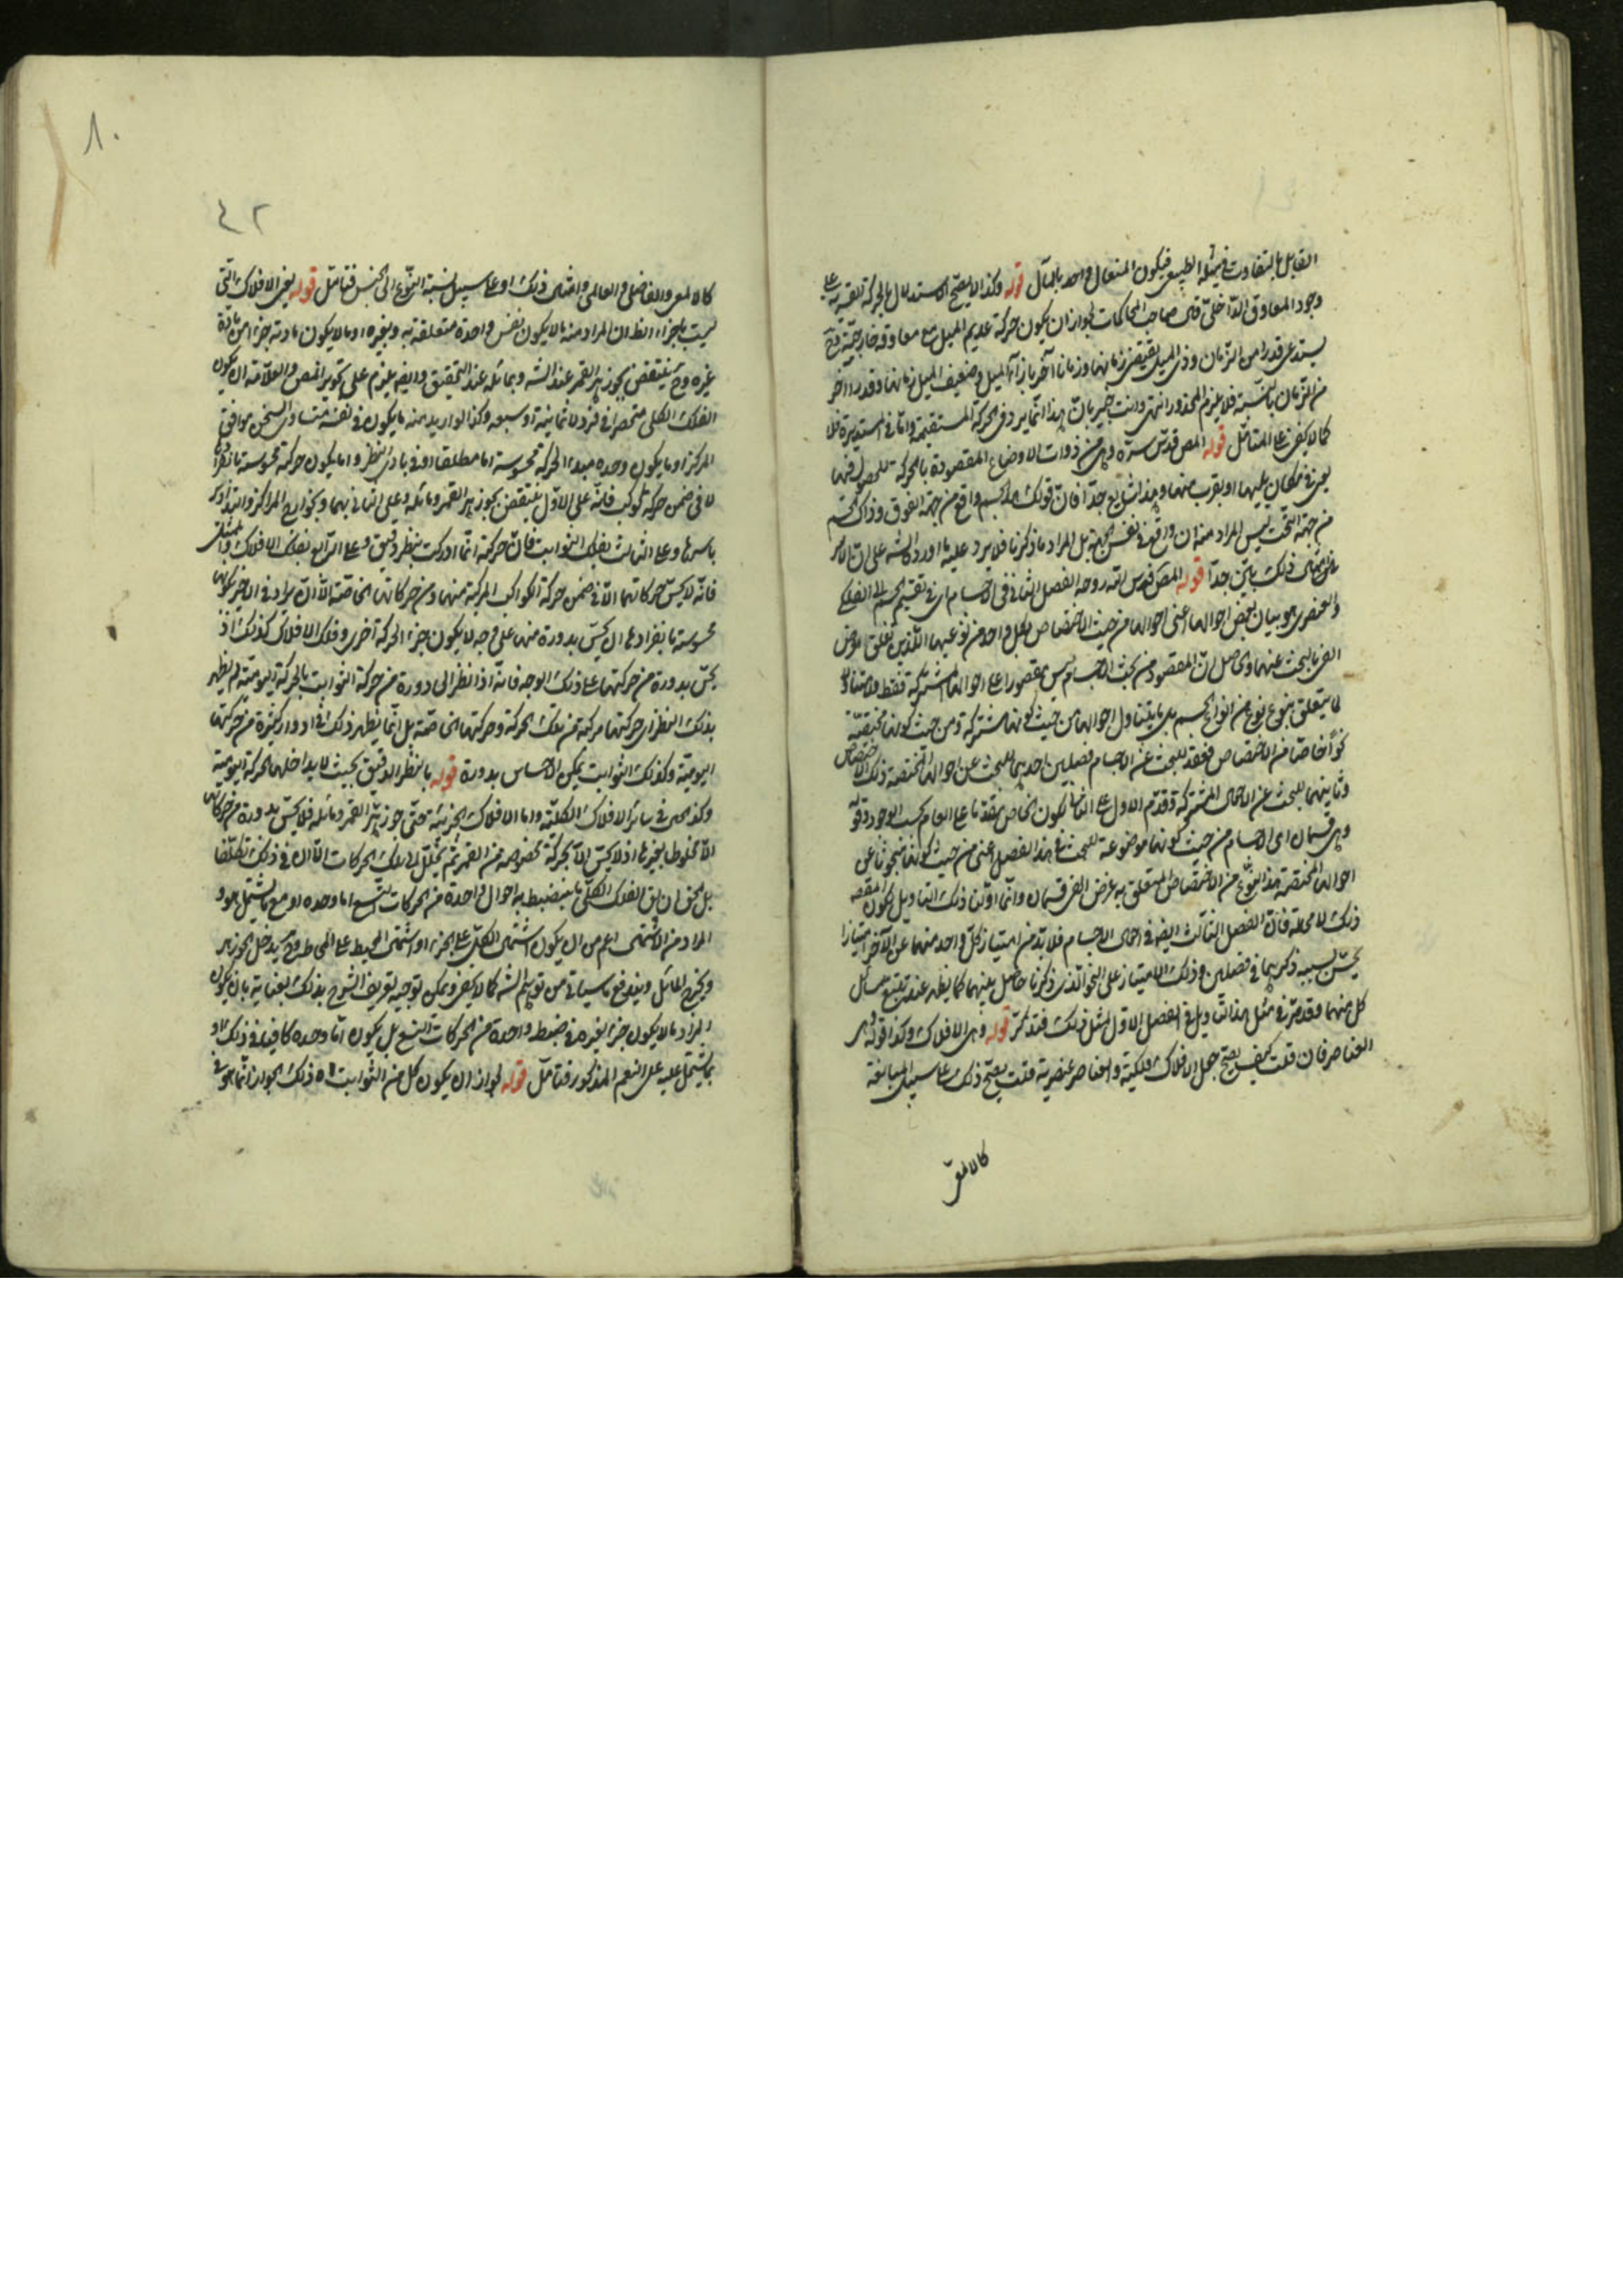 القابل بالتفاوت فيميله الطبيعي فيكون المنفعل واحد بالمآل قوله وكذا لا يصح الاستدلال بالحركة القسرية على
وجود المعاوق الداخلي قال صاحب المحاكمات لجواز ان يكون حركة عديم الميل مع معاوقه خارجية
يستدعي قدرا من الزمان وذي الميل يقتضي زمانها وزمانا آخر بازاء الميل وضعيف الميل زمانها وقدرا آخر
من الزمان بالنسبة فلا يلزم المحذور انتهى وانت خبير بان هذا انما يرد في الحركة المستقيمة واما في المستديرة فلا
كما لا يخفى على المتأمل قوله المص قدس سره وهي من ذوات الاوضاع المقصودة بالحركة للحصول فيها
يعني في مكان يليها او يقرب منها وهذا شايع جدا فان قولك هذا الجسم واقع من جهة الفوق وذاك الجسم
من جهة التحت ليس المراد منه ان واقع في نفس الجهة بل المراد ما ذكرنا فلا يرد عليه ما اورد الشه على ان الامر
في امثال ذلك بين جدا قوله المص قدس الله روحه الفصل الثاني في الاجسام اي في تقسيم الجسم الى الفلكي
والعنصري هو بيان بعض احوالها اعني احوالها من حيث الاختصاص بكل واحد من نوعيها اللذين تعلق غرض
الفن بالبحث عنهما والحاصل ان المقصود من بحث الاجسام ليس مقصورا على احوالها المشتركة فقط
لما يتعلق بنوع نوع من انواع الجسم بل ما يتناول احوالها من حيث كونها مشتركة ومن حيث كونها مختصة
نحوا خاصا من الاختصاص فعقد للبحث عن الاجسام فصلين احدهما للبحث عن احوالها المختصة ذلك الاختصاص
وثانيهما للبحث عن الاحوال المشتركة وقدم الاول على الثاني لكون الخاص مقدما على العام بحسب الوجود قوله
وهي قسمان اي الاجسام من حيث كونها موضوعة للبحث في هذا الفصل اعني من حيث كونها مبحوثا عن
احوالها المختصة هذا النوع من الاختصاص المتعلق به غرض الفن قسمان وانما اولنا ذلك التاويل لكون المقصد
ذلك لا محالة فان الفصل الثالث ايضه في احوال الاجسام فلا بد من امتياز كل واحد منهما عن الآخر امتيازا
يحسن بسببه ذكرهما في فصلين وذلك الامتياز على النحو الذي ذكرنا حاصل بينهما كما يظهر عند تتبع مسائل
كل منهما وقد مر في مثل هذا التاويل في الفصل الاول لمثل ذلك فتذكر قوله وهي الافلاك وكذا قوله وهي
العناصر فان قلت كيف يصح جعل الافلاك فلكية والعناصر عنصرية قلت يصح ذلك على سبيل المبالغة
كالالمعي
٨٠
٤٢
كالالمعي والفاضلي والعالمي وامثال ذلك او على سبيل نسبة النوع الى الجنس فتأمل قوله يعني الافلاك التي
ليست باجزاء الظ ان المراد منه ما لا يكون نفس واحدة متعلقة به وبغيره او ما لا يكون مادته جزءا من مادة
غيره وح ينتقض بجوزهر القمر عند الشه وبمائله عند التحقيق وايضه يلزم على تجويز المص والعلامة ان يكون
الفلك الكلي منحصرا في فرد لا ثمانية او سبعة وكذا لو اريد منه ما يكون في نفسه متساوي السخن موافق
المركز او ما يكون وحده مبدء الحركة محسوسة اما مطلقا او في بادئ النظر او ما يكون حركته محسوسة بانفرادها
لا في ضمن حركة كوكب فانه على الاول ينتقض بجوزهر القمر ومائله وعلى الثاني بهما وبخوارج المراكز والتداوير
باسرها وعلى الثالث بفلك الثوابت فان حركته انما ادركت بنظر دقيق وعلى الرابع بفلك الافلاك والممثل
فانه لا يحس حركاتهما الا في ضمن حركة الكواكب المركبة منهما ومن حركاتها الخاصة الا ان يراد في الاخير بكونها
محسوسة بانفرادها ان يحس بدورة منها على وجه لا يكون جزء الحركة اخرى وفلك الافلاك كذلك اذ
يحس بدورة من حركتها على ذلك الوجه فانه اذا نظر الى دورة من حركة الثوابت بالحركة اليومية لم يظهر
بذلك النظر ان حركتها مركبة من تلك الحركة وحركتها الخاصة بل انما يظهر ذلك في ادوار كثيرة من حركتها
اليومية وكذلك الثوابت يمكن الاحساس بدورة قوله بالنظر الدقيق بحيث لا يداخلها الحركة اليومية
وكذا الحال في سائر الافلاك الكلية واما الافلاك الجزئية حتى جوزهر القمر ومائله فلا يحس بدورة من حركاتها
الا مخلوطا بغيرها اذ لا يحس الا بحركة مخصوصة من القمر ثم يحلل الى تلك الحركات الا ان في ذلك تكلفا
بل الحق ان يق الفلك الكلي ما ينضبط به احوال واحدة من الحركات التسع اما وحده او مع ما يشتمل هو و
المراد من الاشتمال اعم من ان يكون اشتمال الكل على الجزء او اشتمال المحيط على المحاط وح يدخل الجوزهر
ويخرج المائل ويندفع ما سيأتي من توهم الشه كما لا يخفى ويمكن توجيه تعريف الشرح بذلك بعناية بان يكون
المراد ما لا يكون جزءا لغيره في ضبط واحدة من الحركات التسع بل يكون اما وحده كافيا في ذلك او
بما يشتمل عليه على النعم المذكور فتأمل قوله لجواز ان يكون كل من الثوابت اه ذلك الجواز انما هو في